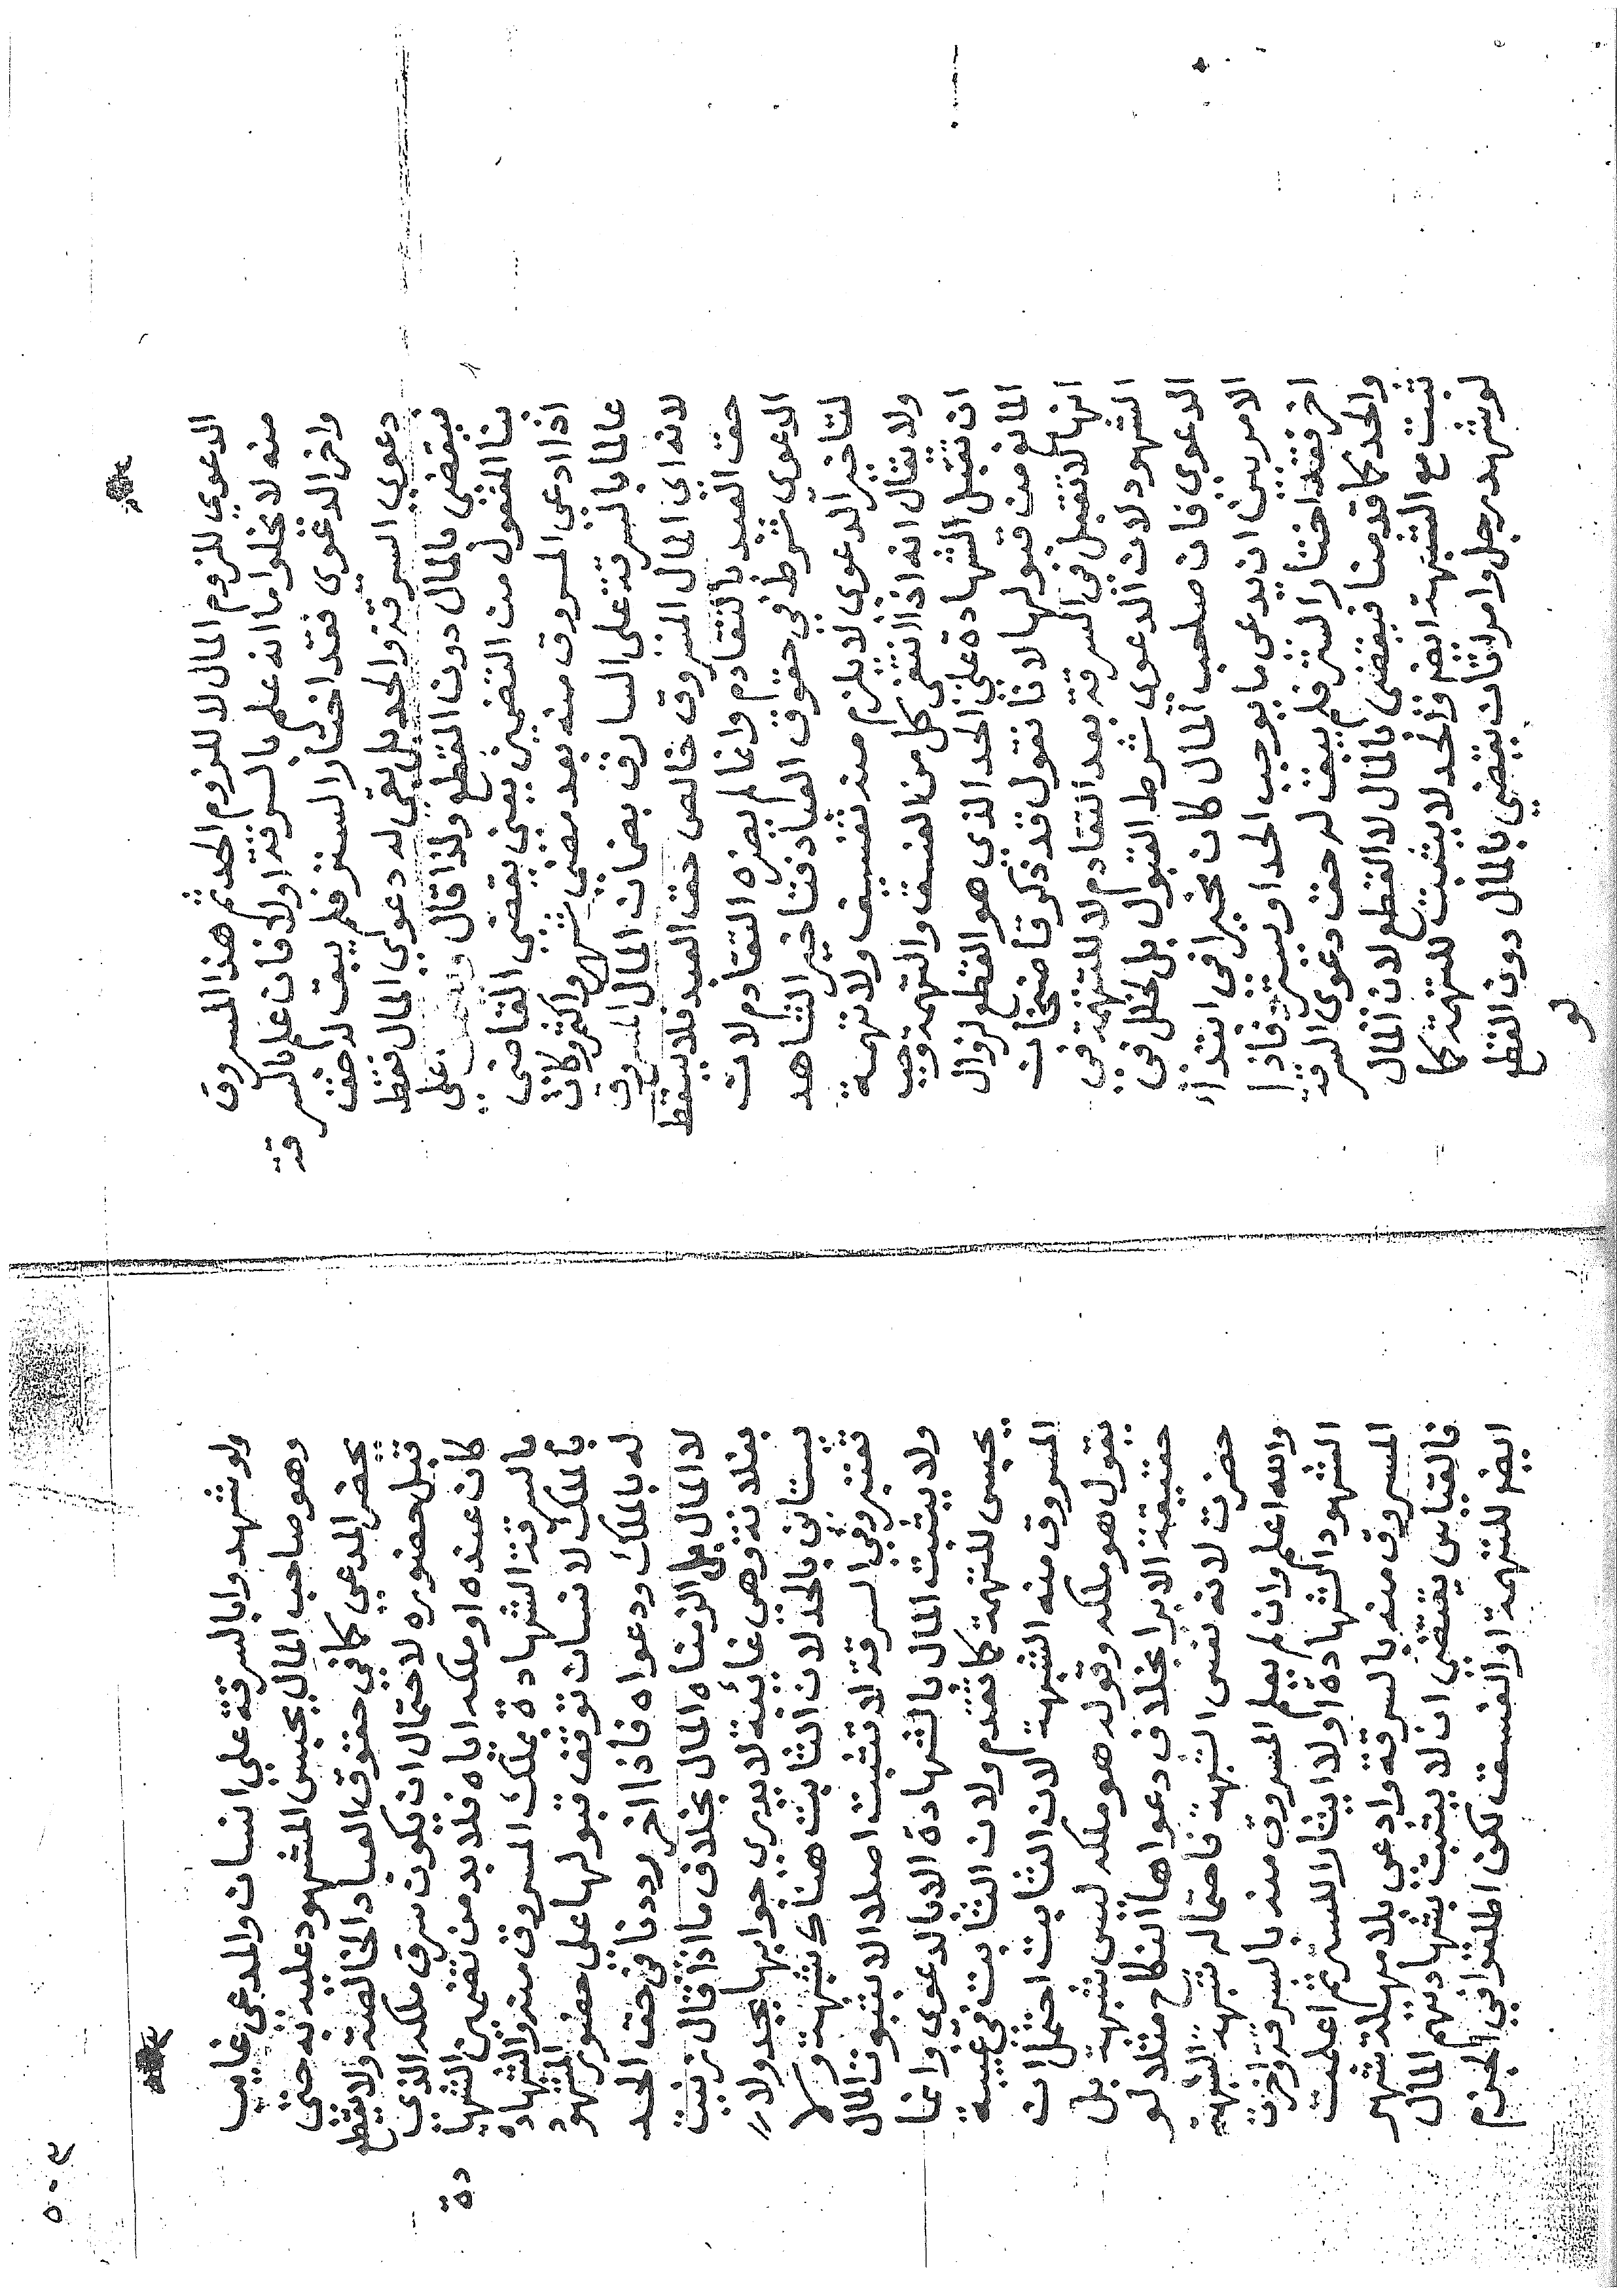 الدعوي للزوم المال لا للزوم الحد ثم هذا المسروق
منه لا يخلوا ما انه علم بالسرقة اولا فان علم بالسرقة
واخر الدعوي فقد اختار الستر فلم يبق له حق
دعوي السرقة والحد بل بقي له دعوي المال فقط
فيقضى بالمال دون القطع ولذا قال على
بنا المفعول من التضمين يعني يقضى القاضى
اذا ادعى المسروق منه بعد مضي شهر واكثر وكان
عالما بالسرقة على السارق بضمان المال المسروق
لانه اى المال المسروق خالص حق العبد فلا يسقط
حق العبد بالتقادم وانما لم يضره التقادم لان
الدعوى شرط في حقوق العباد فتاخير الشاهد
لتاخير الدعوى لا يلزم منه تفسيق ولا تهمة
ولا يقال انه اذا انتفى كل من الفسق والتهمة وجب
ان تقبل الشهادة على الحد الذي هو القطع لزوال
المانع من قبولها لانا نقول قد ذكر قاضيخان
انها لا تقبل في السرقة بعد التقادم لا للتهمة في
الشهود لان الدعوى شرط القبول بل لخلل في
الدعوي فان صاحب المال كان مخيرا في ابتداء
الامر بين ان يدعى ما يوجب الحد او يستر فاذا
اخر فقد اختار الستر فلم يبق له حق دعوى السرقة
والحد كما قدمنا فيقضى بالمال لا القطع لان المال
يثبت مع الشبهة ايض والحد لا يثبت للتهمة كما
لو شهد رجل وامراتان يقضي بالمال دون القطع
لو
ولو شهدوا بالسرقة على انسان والمدعى غايب
وهو صاحب المال يحبس المشهود عليه به حتى
يحضر المدعي كما في حقوق العباد الخالصة ولا يقطع
قبل حضوره لاحتمال ان يكون سرق ملكه الذى
كان عنده او ملكه اياه فلا بد من تضمين الشهادة
بالسرقة الشهادة بملك المسروق منه والشهادة
بالملك لانسان توقف قبولها على حضور المشهود
له بالملك ودعواه فاذا اخر رددنا في حق الحد
لا المال بل الزمناه المال بخلاف ما اذا قال زنيت
بفلانة وهي غائبة لا يدرى جوابها يحد ولا
يستانى بالحد لان الثابت هناك شبهة ولا
تعتبر وفي السرقة لا تثبت اصلا الا بثبوت المال
ولا يثبت المال بالشهادة الا بالدعوى وانما
يحبس للتهمة كما تقدم ولان الثابت في غيبة
المسروق منه الشبهة لان الثابت احتمال ان
يقول هو ملكه وقوله هو ملكه ليس شبهة بل
حقيقة الابرا بخلاف دعواها النكاح مثلا لو
حضرت لانه نفس الشبهة فاحتماله شبهة الشبهة
والله اعلم وان لم يعلم المسروق منه بالسرقة واخرت
الشهود الشهادة اولا ايثارا للستر ثم اعلمت
المسروق منه بالسرقة وادعى بلا مهلة شهر
فالقياس يقتضي ان لا يثبت بشهادتهم المال
ايض للتهمة او الفسق لكن اطلقوا في الجزم
٥٠٤